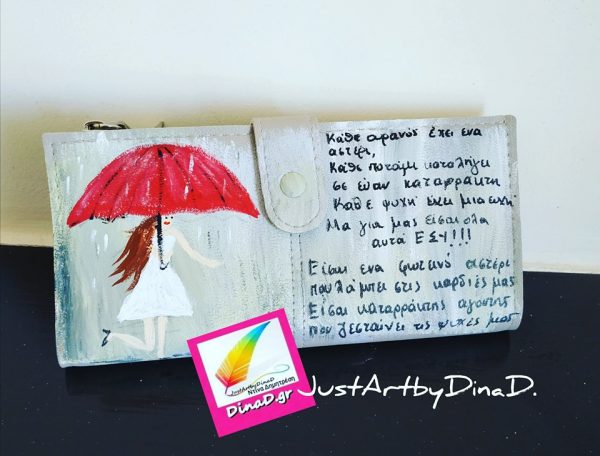 Κάθε ουρανός έχει ένα
αστέρι,
Κάθε ποτάμι καταλήγει
σε έναν καταρράκτη
Κάθε ψυχή έχει μια ευχή
Μα για μας εισαι ολα
αυτά ΕΣΥ!!!
Είσαι ένα φωτεινό αστέρι
που λάμπει στις καρδιές μας
Είσαι καταρράκτης αγάπης
που ζεσταίνει τις ψυχές μας
JustArtbyDinaD
Ντίνα Δημητρέση
DinaD.gr
JustArtbyDinaD.